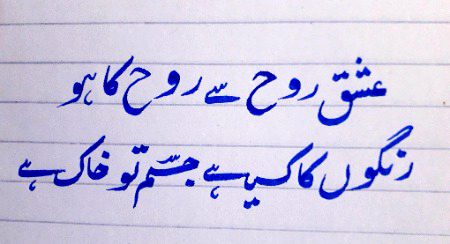 عشق روح سے روح کا ہو
رنگوں کا کیا ہے جسّم تو خاک ہے